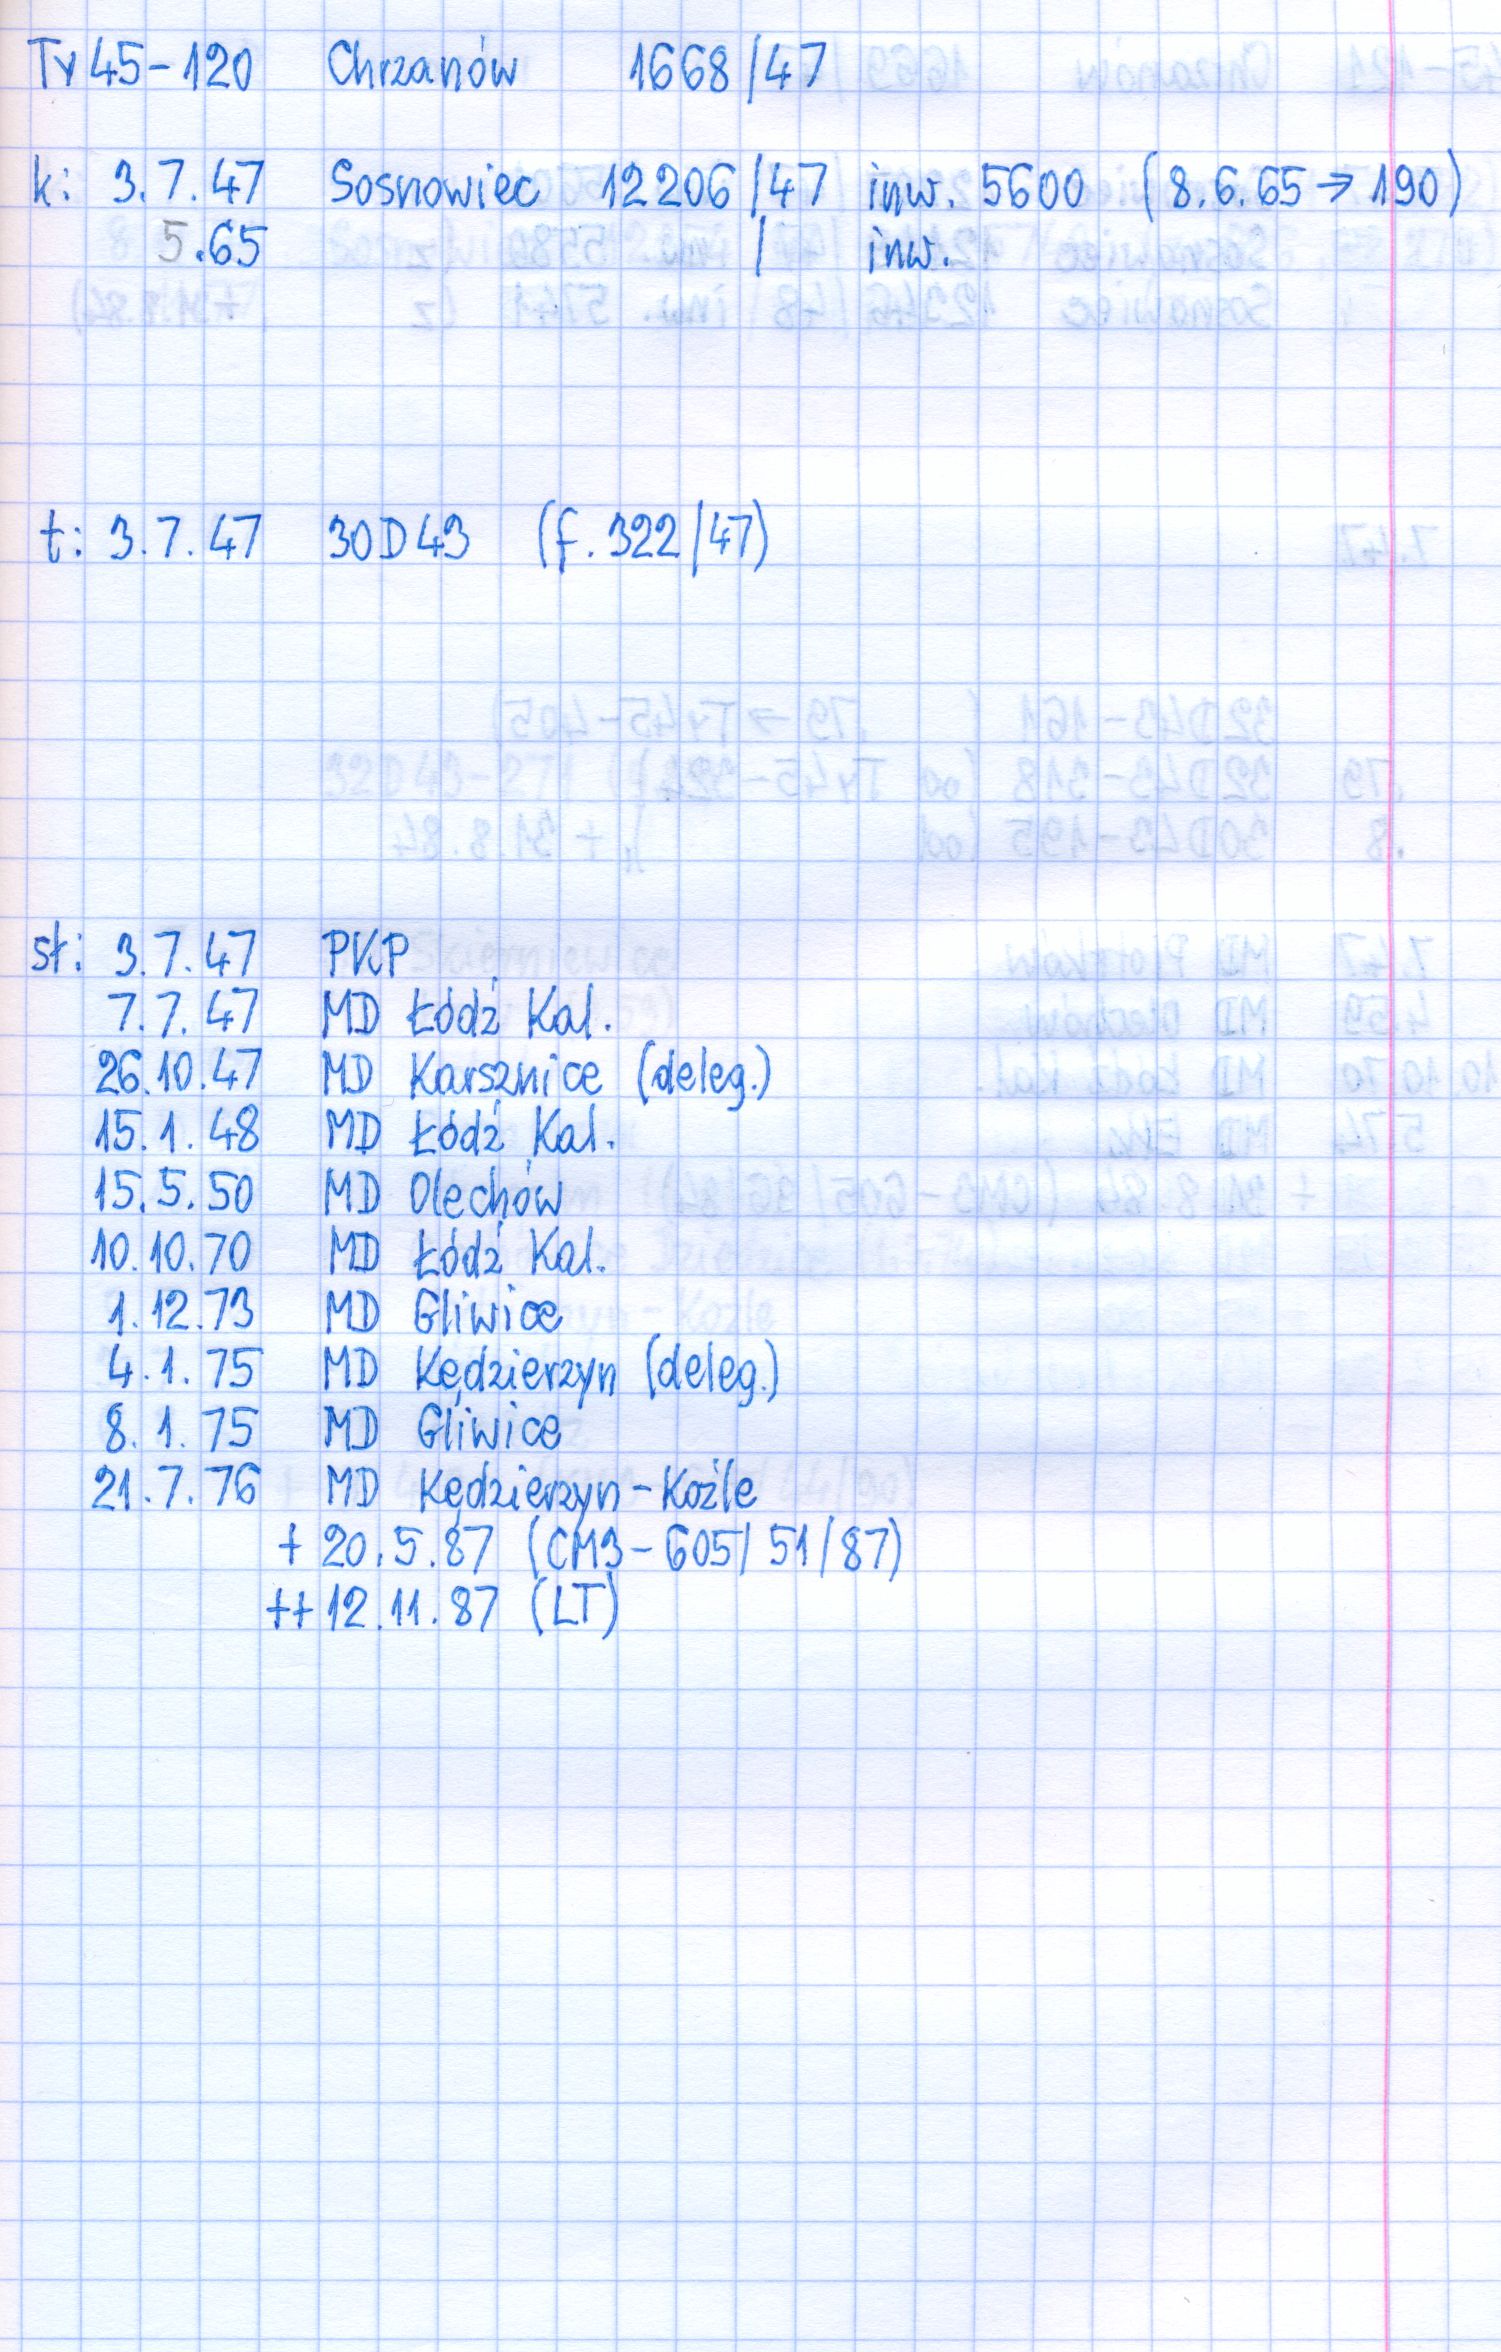 Ty45-120 Chrzanów 1668/47
k: 3.7.47 Sosnowiec 12206/47 inw. 5600 (8.6.65 → 190)
5.65 / inw.
t: 3.7.47 30D43 (f. 322/47)
sł: 3.7.47 PKP
7.7.47 MD Łódź Kal.
26.10.47 MD Karsznice (deleg.)
15.1.48 MD Łódź Kal.
15.5.50 MD Olechów
10.10.70 MD Łódź Kal.
1.12.73 MD Gliwice
4.1.75 MD Kędzierzyn (deleg.)
8.1.75 MD Gliwice
21.7.76 MD Kędzierzyn-Koźle
+ 20.5.87 (CM3-605/51/87)
++ 12.11.87 (LT)